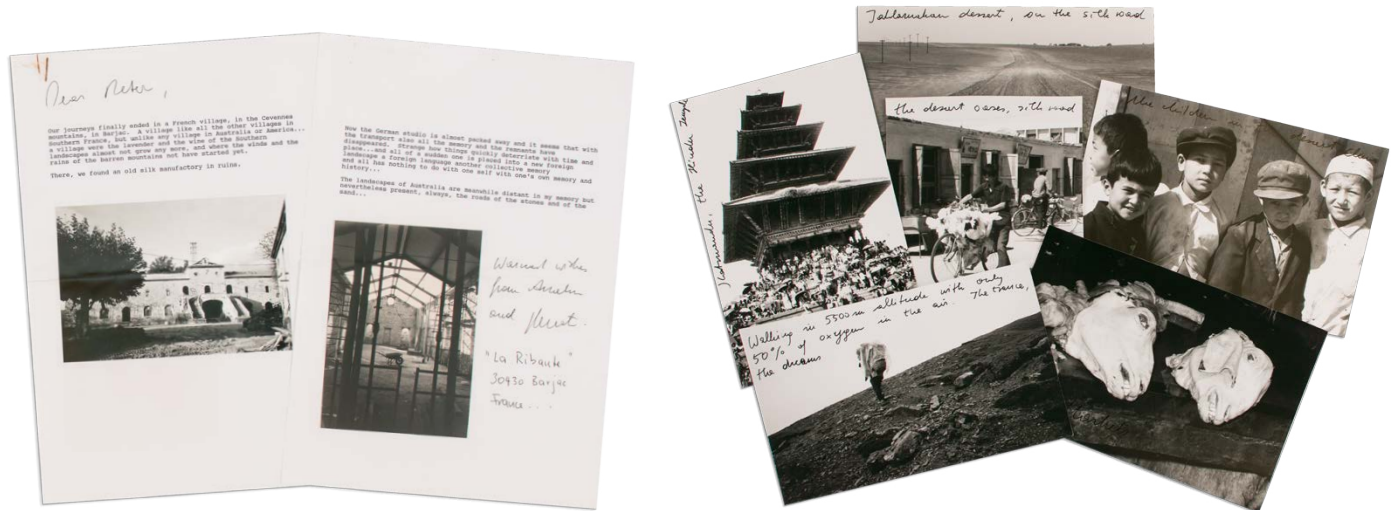 Dear Peter,
Our journeys finally ended in a French village, in the Cevennes
mountains, in Barjac. A village like all the other villages in
Southern France, but unlike any village in Australia or America...
a village were the lavender and the wine of the Southern
landscapes almost not grow any more, and where the winds and the
rains of the barren mountains not have started yet.
There, we found an old silk manufactory in ruins.
Now the German studio is almost packed easy and it seems that with
the transport also all the memory and the remnants have
disappeared. Strange how things quickly deterriste with time and
place...and all of a sudden one is placed into a new foreign
landscape a foreign language another collective memory
and all has nothing to do with one self with one's own memory and
history...
The landscapes of Australia are meanwhile distant in my memory but
nevertheless present, always, the roads of the stones and of the
sand...
Warmest wishes
from Anselm
and
"La Ribaute"
30430 Barjac
France....
Tahlamakan dessert, on the silk road
the desert oases, silk road
the children in
Katmandu, the Hindu Temple
Walking in 5500m altitude with only
50% of oxygen in the air. The trance,
the dreams